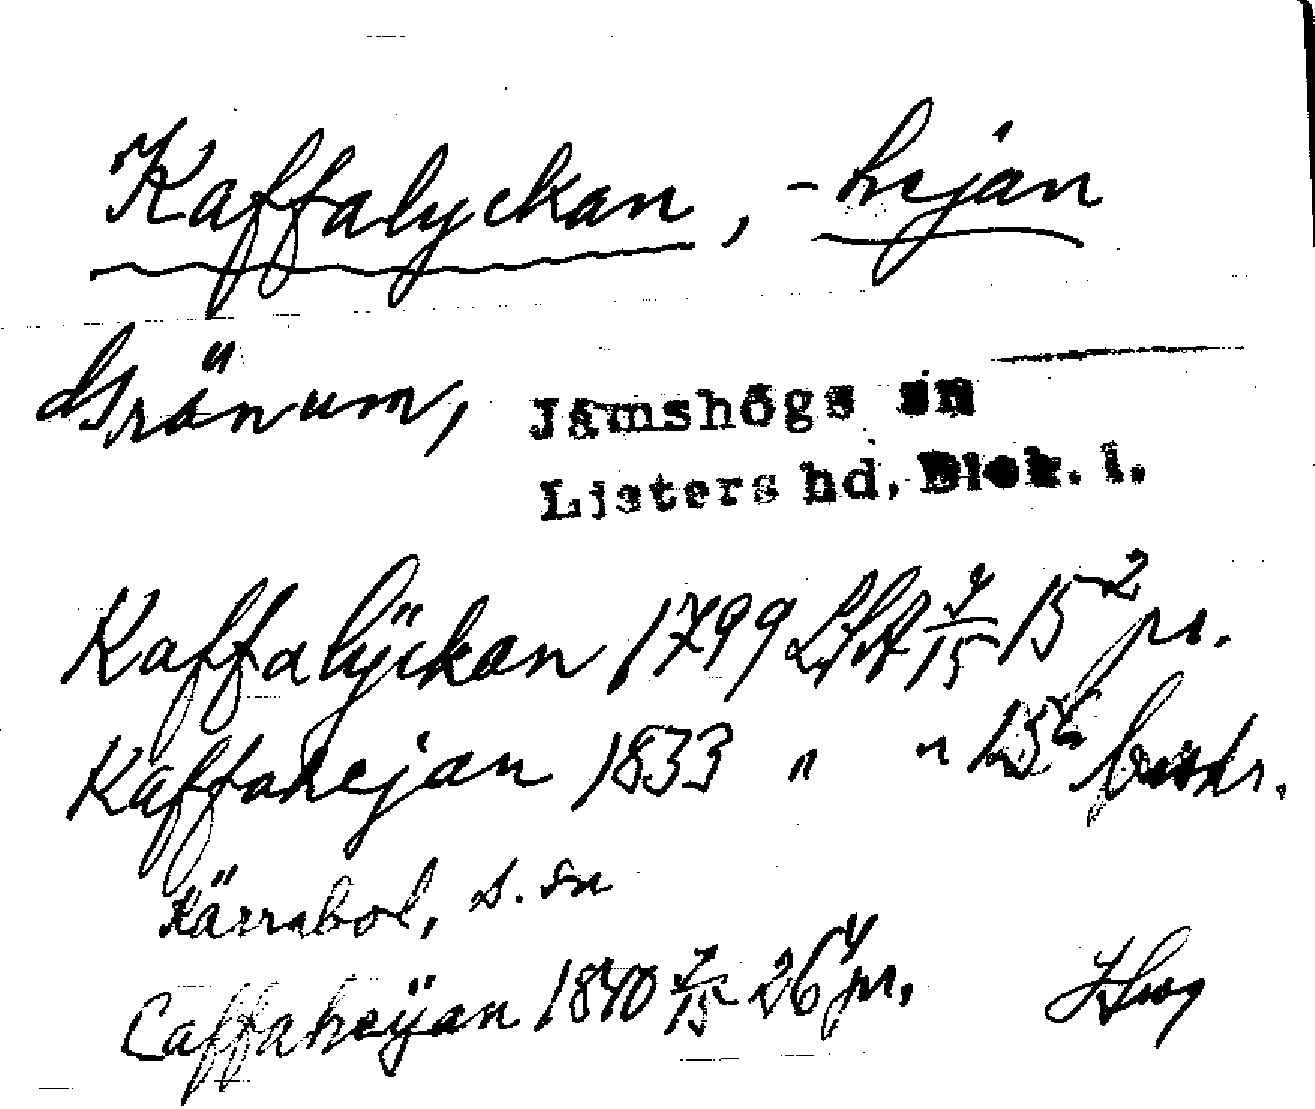 Kaffalyckan, -hejan
Grönum, Jämshögs sn
Listers hd, Blek. l.
Kaffalÿckan 1799 LSA 7/15 15² pr.
Kaffahejan 1833 " " 15
Kärrabol, s. sn
Caffaheÿan 1840 7/15 26⁴ pr.